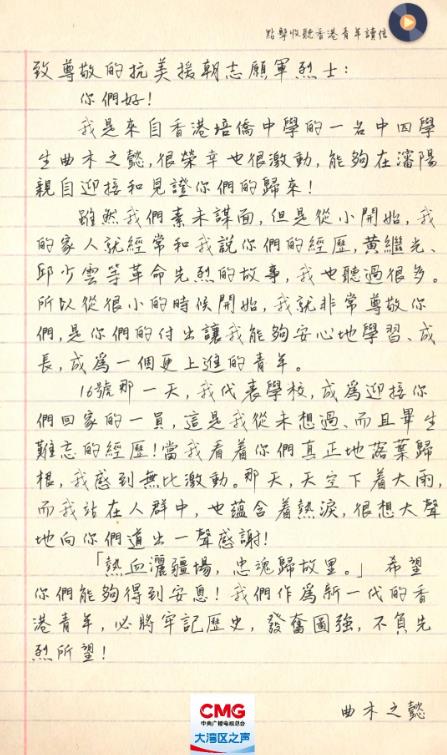 點擊收聽香港青年讀信
致尊敬的抗美援朝志願軍烈士：
你們好！
我是來自香港培僑中學的一名中四學
生曲木之懿，很榮幸也很激動，能夠在瀋陽
親自迎接和見證你們的歸來！
雖然我們素未謀面，但是從小開始，我
的家人就經常和我說你們的經歷，黃繼光、
邱少雲等革命先烈的故事，我也聽過很多。
所以從很小的時候開始，我就非常尊敬你
們，是你們的付出讓我能夠安心地學習、成
長，成為一個更上進的青年。
16號那一天，我代表學校，成為迎接你
們回家的一員，這是我從未想過、而且畢生
難忘的經歷！當我看着你們真正地落葉歸
根，我感到無比激動。那天，天空下着大雨，
而我站在人群中，也蘊含着熱淚，很想大聲
地向你們道出一聲感謝！
「熱血灑疆場，忠魂歸故里。」希望
你們能夠得到安息！我們作為新一代的香
港青年，必將牢記歷史，發奮圖強，不負先
烈所望！
曲木之懿
CMG
中央广播电视总台
大湾区之声